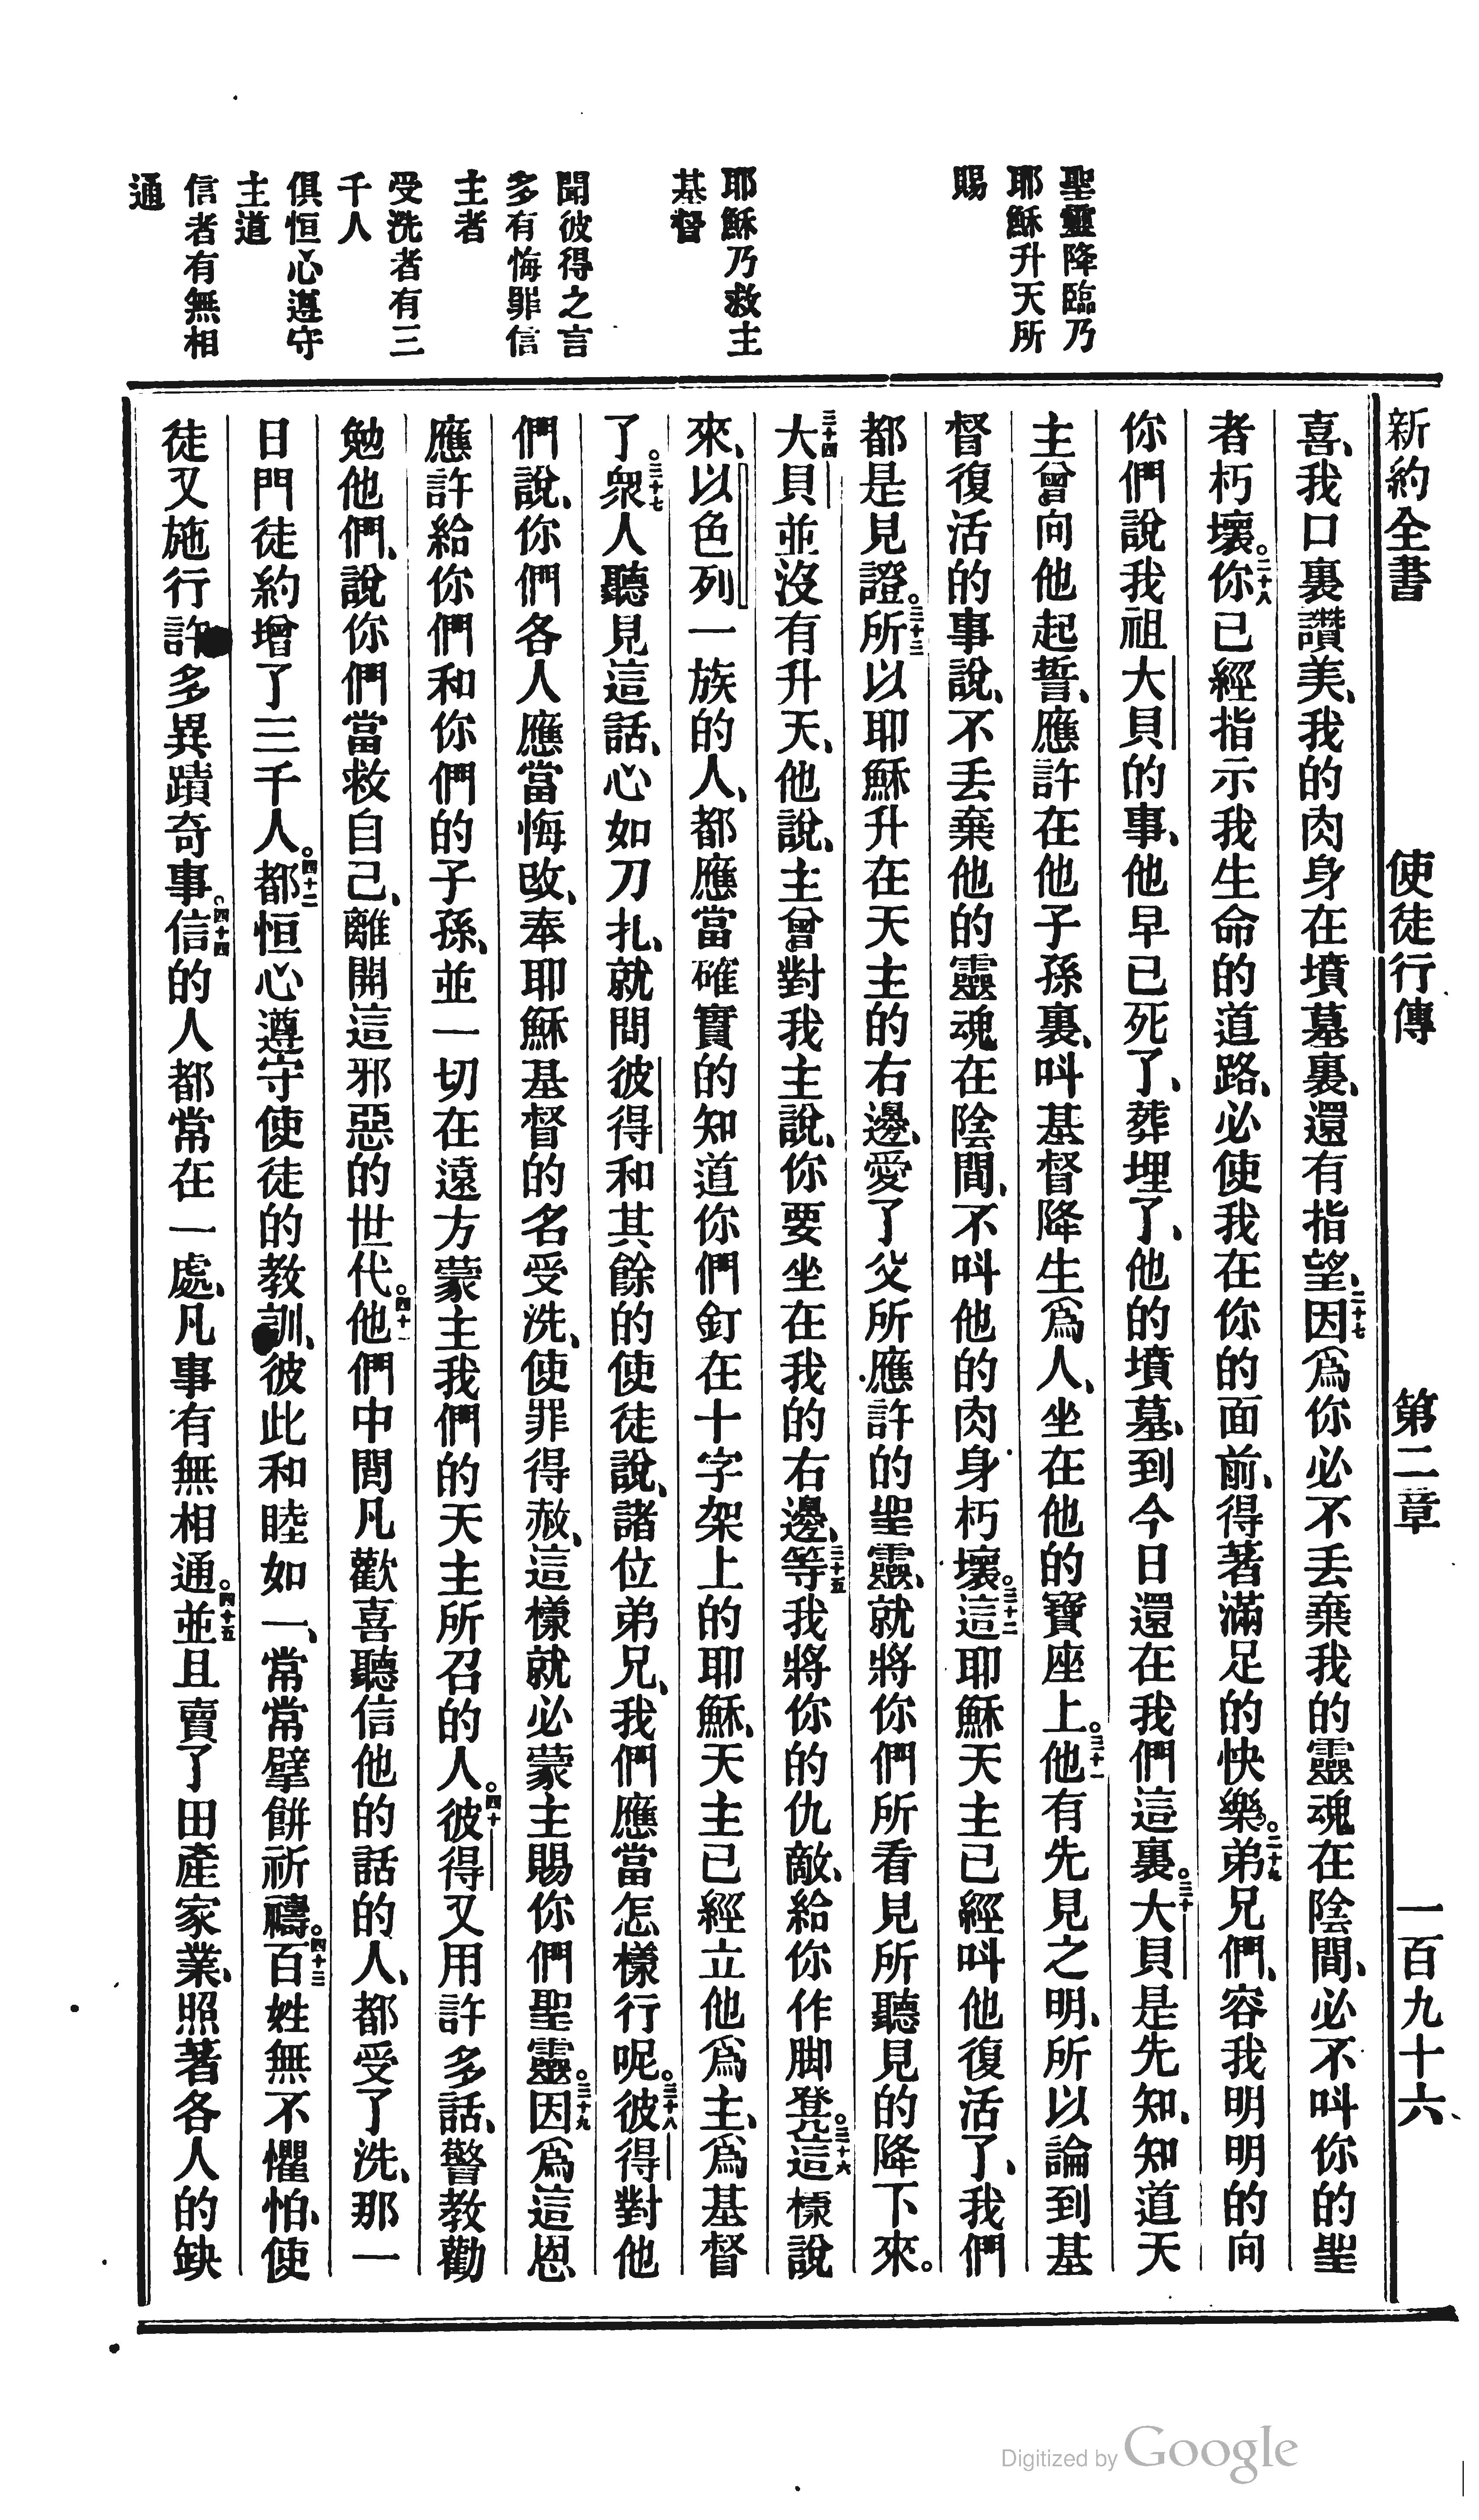 新約全書 使徒行傳 第二章 一百九十六
聖靈降臨乃
耶穌升天所
賜
耶穌乃救主
基督
聞彼得之言
多有悔罪信
主者
受洗者有三
千人
俱恒心遵守
主道
信者有無相
通
喜、我口裏讚美、我的肉身在墳墓裏、還有指望、二十七因爲你必不丟棄我的靈魂在陰間、必不呌你的聖
者朽壞。二十八你已經指示我生命的道路、必使我在你的面前、得著滿足的快樂。二十九弟兄們、容我明明的向
你們說我祖大貝的事、他早已死了、葬埋了、他的墳墓、到今日還在我們這裏。三十大貝是先知、知道天
主曾向他起誓、應許在他子孫裏、呌基督降生爲人、坐在他的寶座上。三十一他有先見之明、所以論到基
督復活的事說、不丟棄他的靈魂在陰間、不呌他的肉身朽壞。三十二這耶穌天主已經呌他復活了、我們
都是見證。三十三所以耶穌升在天主的右邊、愛了父所應許的聖靈、就將你們所看見所聽見的降下來。
三十四大貝並沒有升天、他說、主曾對我主說、你要坐在我的右邊、三十五等我將你的仇敵、給你作脚凳。三十六這樣說
來、以色列一族的人、都應當確實的知道你們釘在十字架上的耶穌、天主已經立他爲主、爲基督
了。三十七衆人聽見這話、心如刀扎、就問彼得和其餘的使徒說、諸位弟兄、我們應當怎樣行呢。三十八彼得對他
們說、你們各人應當悔改、奉耶穌基督的名受洗、使罪得赦、這樣就必蒙主賜你們聖靈。三十九因爲這恩
應許給你們和你們的子孫、並一切在遠方蒙主我們的天主所召的人。四十彼得又用許多話、警教勸
勉他們、說你們當救自己、離開這邪惡的世代。四十一他們中間凡歡喜聽信他的話的人、都受了洗、那一
日門徒約增了三千人。四十二都恒心遵守使徒的教訓、彼此和睦如一、常常擘餅祈禱。四十三百姓無不懼怕、使
徒又施行許多異蹟奇事。四十四信的人都常在一處、凡事有無相通。四十五並且賣了田產家業、照著各人的缺
Digitized by Google